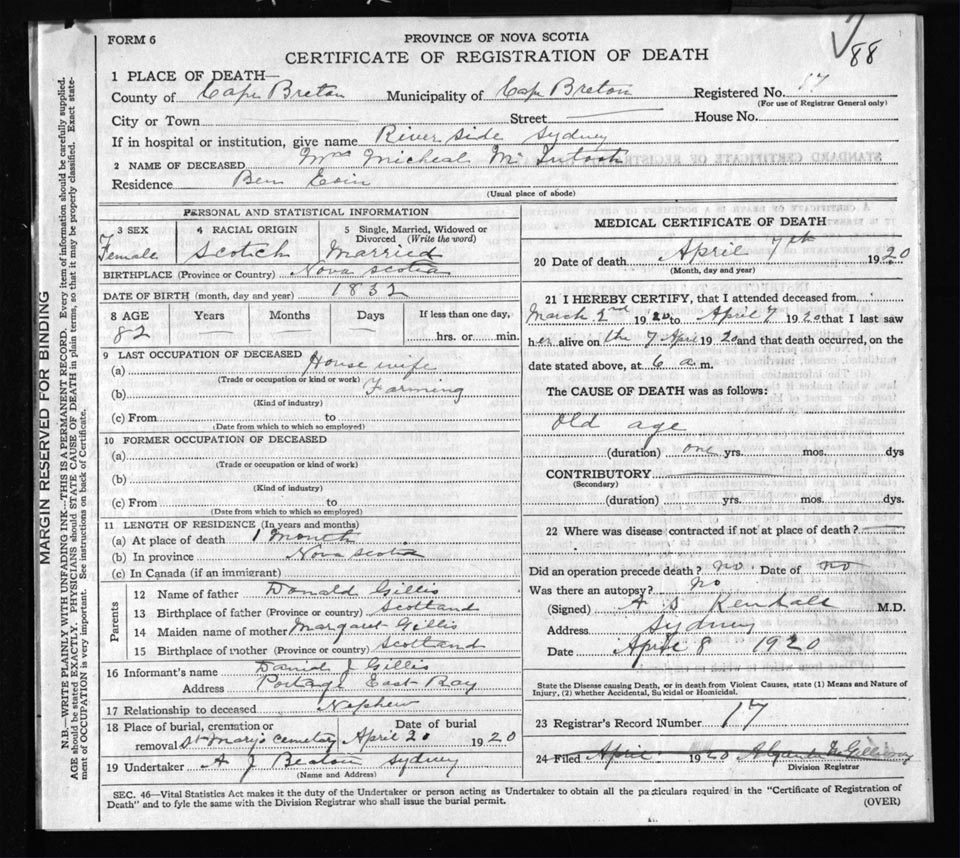 88
FORM 6
PROVINCE OF NOVA SCOTIA
CERTIFICATE OF REGISTRATION OF DEATH
1 PLACE OF DEATH—
County of Cape Breton Municipality of Cape Breton Registered No. 17
(For use of Registrar General only)
City or Town Street House No.
If in hospital or institution, give name River Side Sydney
2 NAME OF DECEASED Mrs Micheal McIntosh
Residence Ben Eoin
(Usual place of abode)
MARGIN RESERVED FOR BINDING
N.B.—WRITE PLAINLY WITH UNFADING INK—THIS IS A PERMANENT RECORD. Every item of information should be carefully supplied.
AGE should be stated EXACTLY. PHYSICIANS should STATE CAUSE OF DEATH in plain terms, so that it may be properly classified. Exact state-
ment of OCCUPATION is very important. See instructions on back of Certificate.
PERSONAL AND STATISTICAL INFORMATION
3 SEX 4 RACIAL ORIGIN 5 Single, Married, Widowed or
Divorced (Write the word)
Female Scotch Married
BIRTHPLACE (Province or Country) Nova Scotia
DATE OF BIRTH (month, day and year) 1832
8 AGE Years Months Days If less than one day,
82 hrs. or min.
9 LAST OCCUPATION OF DECEASED
(a) House wife
(Trade or occupation or kind or work)
(b) Farming
(Kind of industry)
(c) From to
(Date from which to which so employed)
10 FORMER OCCUPATION OF DECEASED
(a)
(Trade or occupation or kind of work)
(b)
(Kind of industry)
(c) From to
(Date from which to which so employed)
11 LENGTH OF RESIDENCE (In years and months)
(a) At place of death 1 Month
(b) In province Nova Scotia
(c) In Canada (if an immigrant)
Parents
12 Name of father Donald Gillis
13 Birthplace of father (Province or country) Scotland
14 Maiden name of mother Margaret Gillis
15 Birthplace of mother (Province or country) Scotland
16 Informant's name David J Gillis
Address Portage East Bay
17 Relationship to deceased Nephew
18 Place of burial, cremation or Date of burial
removal St Mary's Cemetary April 20 1920
19 Undertaker A J Beaton Sydney
(Name and Address)
MEDICAL CERTIFICATE OF DEATH
20 Date of death April 7th 1920
(Month, day and year)
21 I HEREBY CERTIFY, that I attended deceased from
March 2nd 1920 to April 7 1920 that I last saw
her alive on the 7 April 1920 and that death occurred, on the
date stated above, at 6 a.m.
The CAUSE OF DEATH was as follows:
Old age
(duration) one yrs. mos. dys
CONTRIBUTORY
(Secondary)
(duration) yrs. mos. dys.
22 Where was disease contracted if not at place of death?
Did an operation precede death? no Date of no
Was there an autopsy? no
(Signed) A S Kendall M.D.
Address Sydney
Date April 8 1920
State the Disease causing Death, or in death from Violent Causes, state (1) Means and Nature of
Injury, (2) whether Accidental, Suicidal or Homicidal.
23 Registrar's Record Number 17
24 Filed April 1920
Division Registrar
SEC. 46—Vital Statistics Act makes it the duty of the Undertaker or person acting as Undertaker to obtain all the particulars required in the "Certificate of Registration of
Death" and to fyle the same with the Division Registrar who shall issue the burial permit.
(OVER)